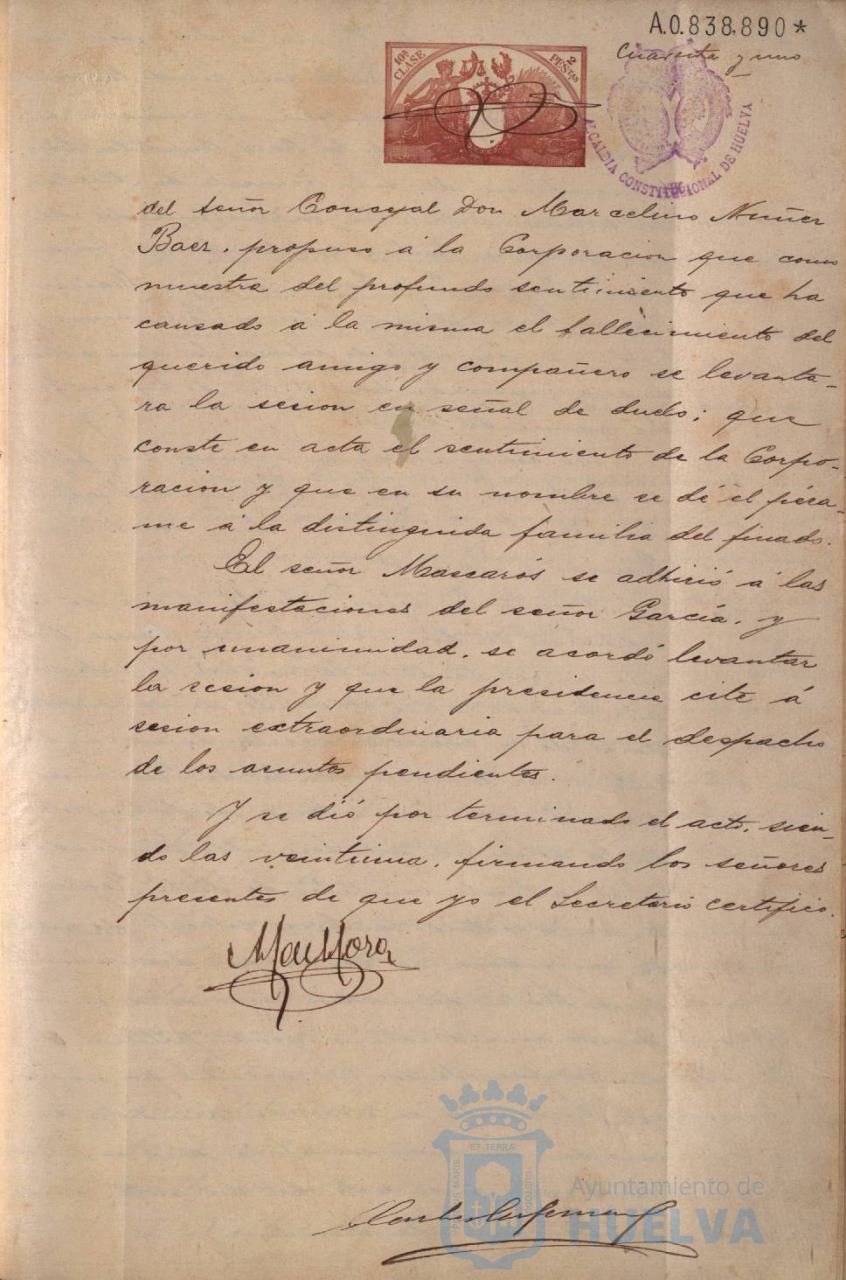 A.0.838,890*
Cuarenta y uno
10ª CLASE
2 PESTAS
ALCALDIA CONSTITUCIONAL DE HUELVA
del señor Concejal Don Marcelino Nuñez
Baez, propuso á la Corporacion que como
muestra del profundo sentimiento que ha
causado á la misma el fallecimiento del
querido amigo y compañero se levanta-
ra la sesion en señal de duelo; que
conste en acta el sentimiento de la Corpo-
racion y que en su nombre se dé el pésa-
me á la distinguida familia del finado.
El señor Mascarós se adhirió á las
manifestaciones del señor García, y
por unanimidad, se acordó levantar
la sesion y que la presidencia cite á
sesion extraordinaria para el despacho
de los asuntos pendientes.
Y se dió por terminado el acto, sien-
do las veintiuna, firmando los señores
presentes de que yo el Secretario certifico.
Ayuntamiento de
HUELVA